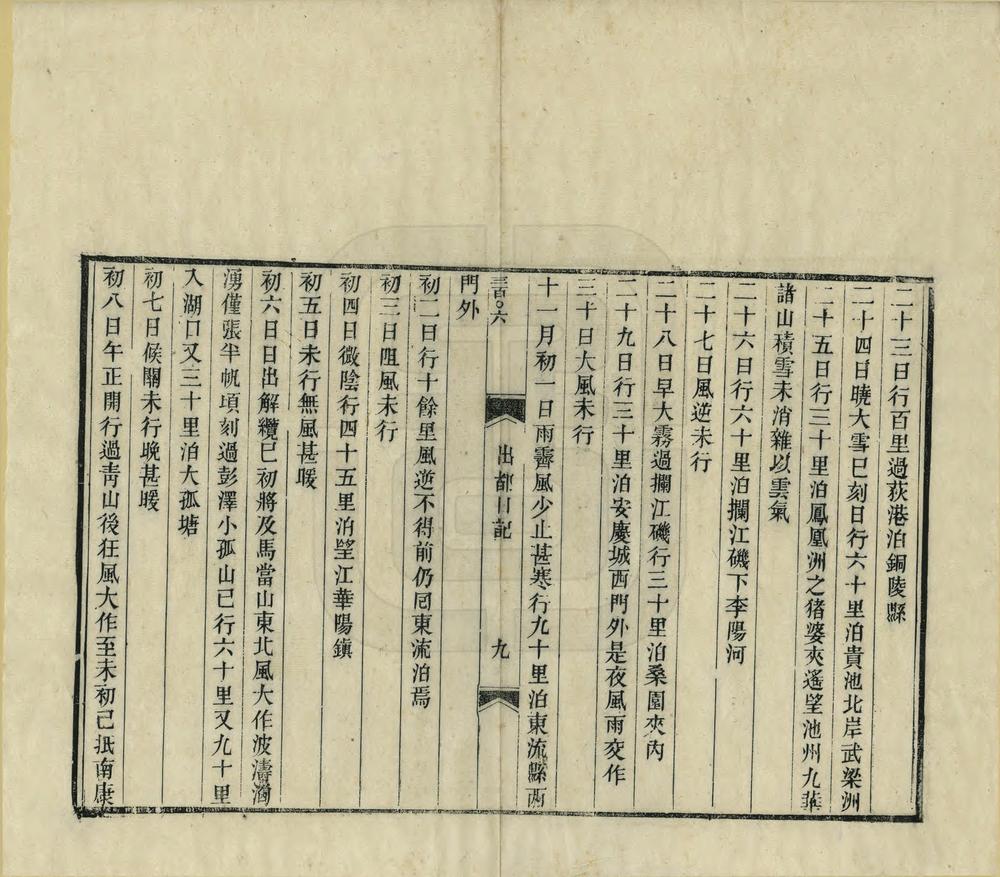 二十三日行百里過荻港泊銅陵縣
二十四日曉大雪巳刻日行六十里泊貴池北岸武梁洲
二十五日行三十里泊鳳凰洲之猪婆夾遙望池州九華
諸山積雪未消雜以雲氣
二十六日行六十里泊攔江磯下李陽河
二十七日風逆未行
二十八日早大霧過攔江磯行三十里泊桑園夾內
二十九日行三十里泊安慶城西門外是夜風雨交作
三十日大風未行
十一月初一日雨霽風少止甚寒行九十里泊東流縣西
出都日記
九
門外
初二日行十餘里風逆不得前仍回東流泊焉
初三日阻風未行
初四日微陰行四十五里泊望江華陽鎮
初五日未行無風甚暖
初六日日出解纜巳初將及馬當山東北風大作波濤洶
湧僅張半帆頃刻過彭澤小孤山已行六十里又九十里
入湖口又三十里泊大孤塘
初七日候關未行晚甚暖
初八日午正開行過靑山後狂風大作至未初已抵南康